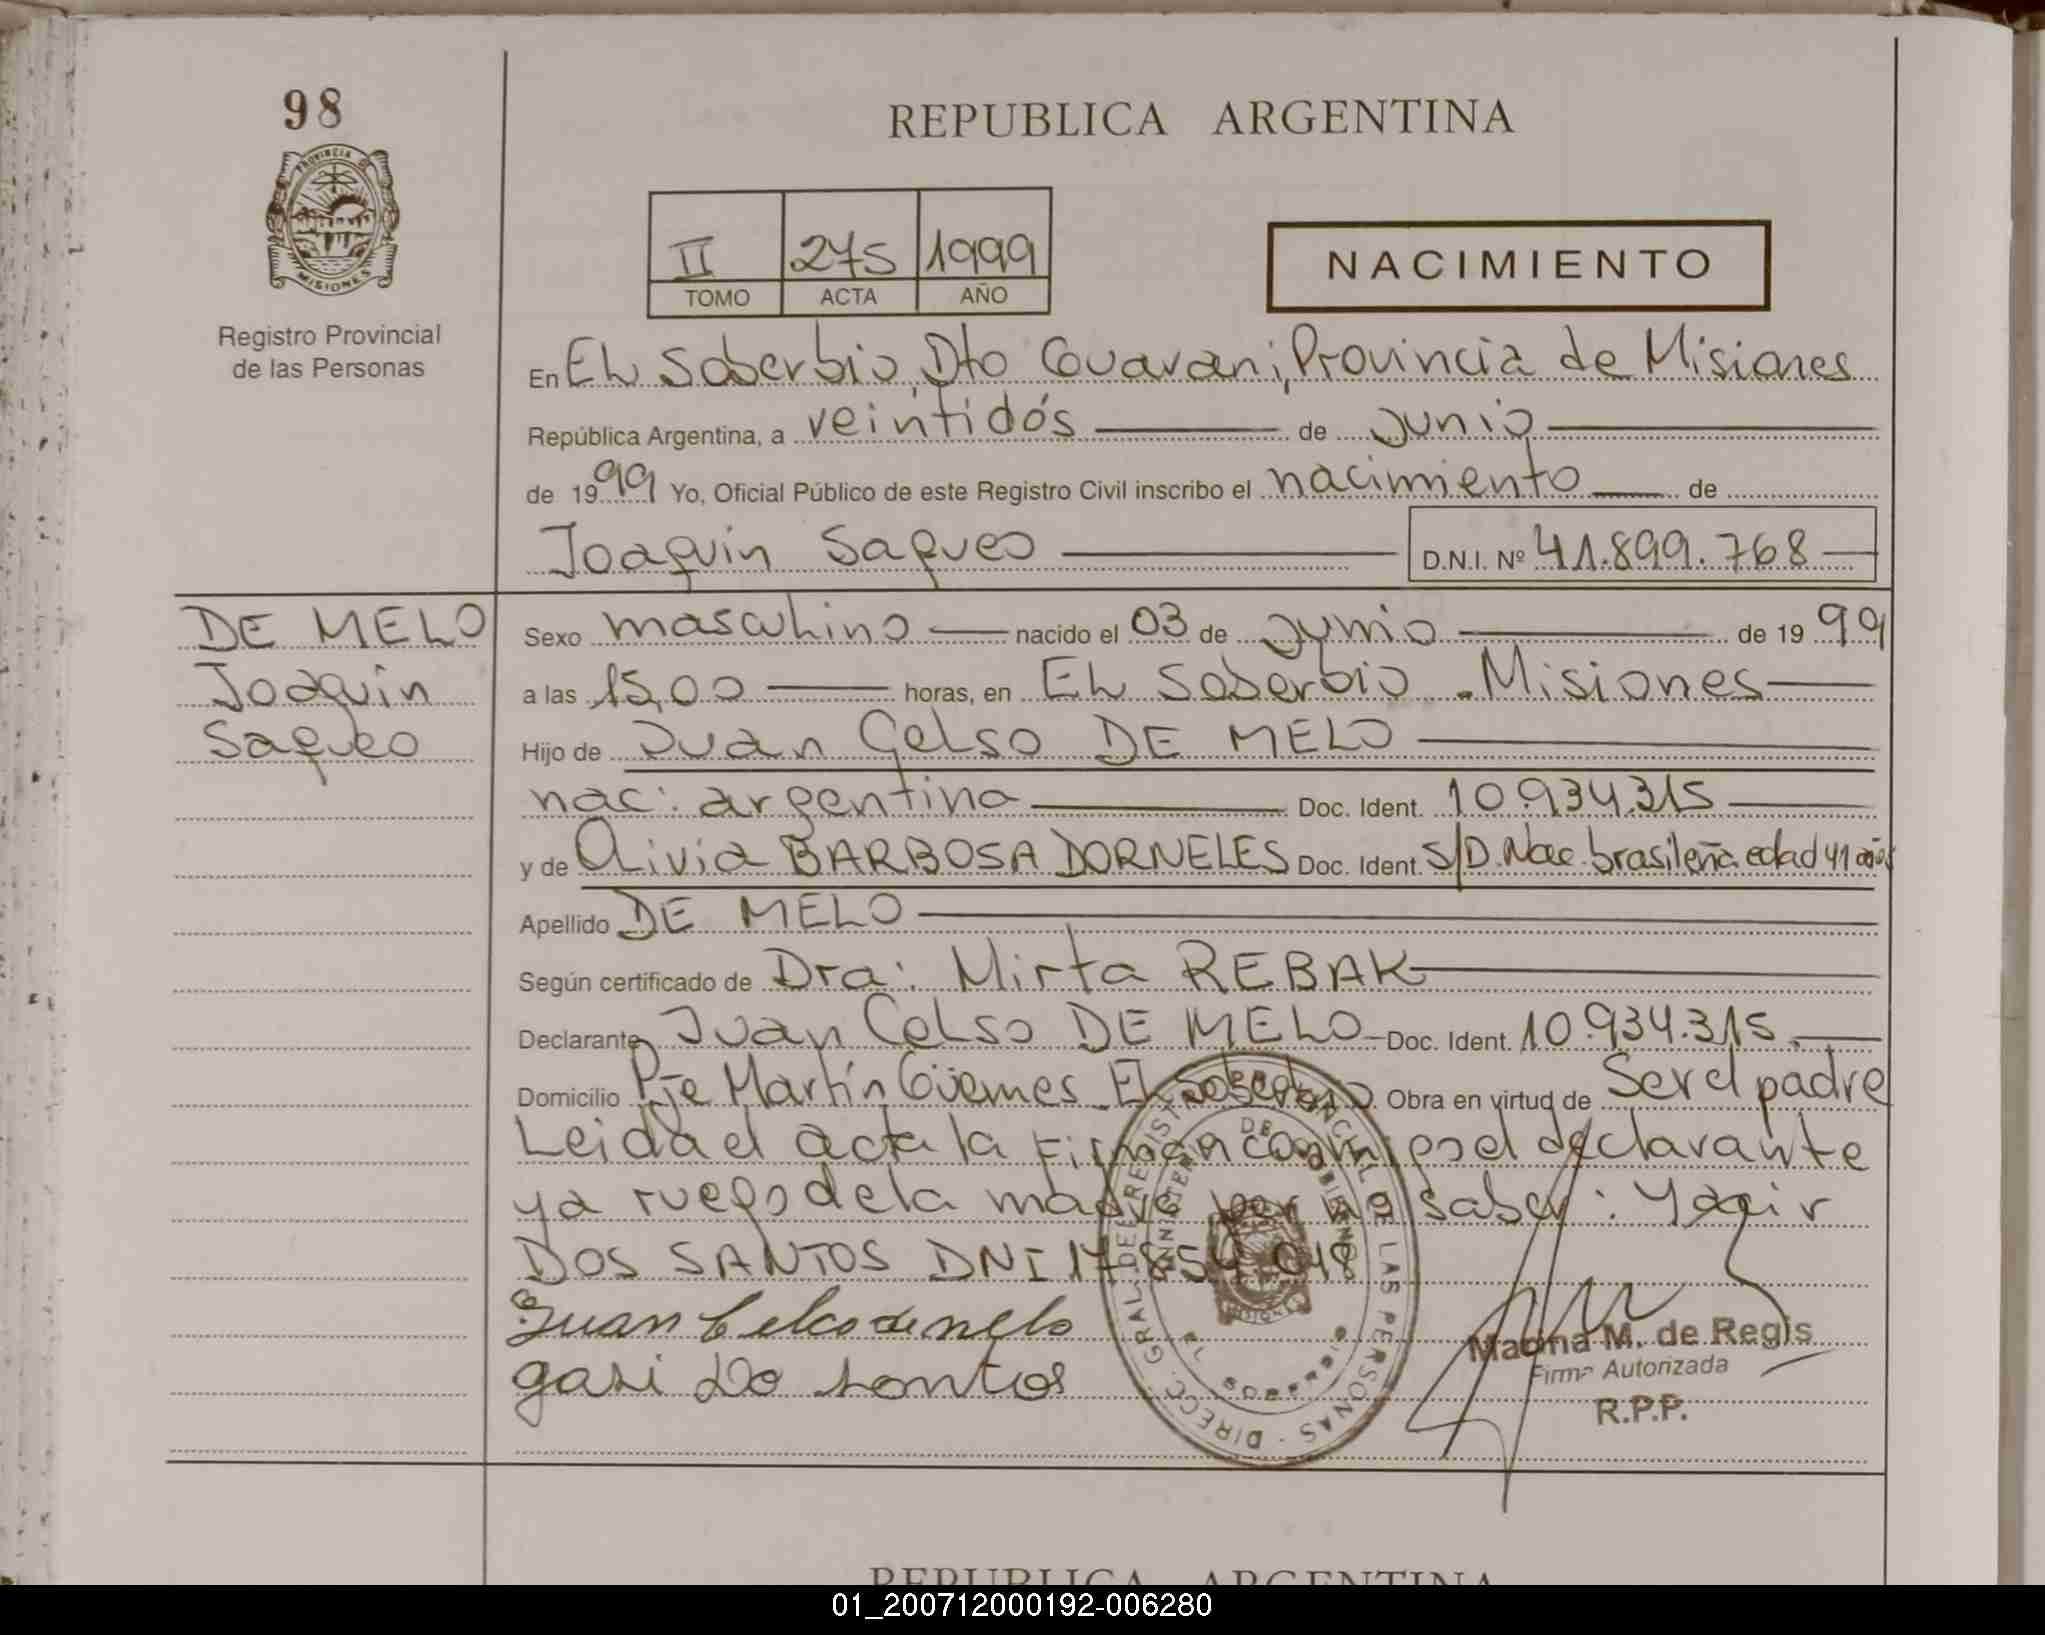 98
PROVINCIA DE
MISIONES
Registro Provincial
de las Personas
REPUBLICA ARGENTINA
II 275 1999
TOMO ACTA AÑO
NACIMIENTO
En EL Soberbio, Dto Guarani, Provincia de Misiones
República Argentina, a veintidós de Junio
de 1999 Yo, Oficial Público de este Registro Civil inscribo el nacimiento de
Joaquin Saqueo D.N.I. Nº 41.899.768
DE MELO
Joaquin
Saqueo
Sexo masculino nacido el 03 de Junio de 1999
a las 15,00 horas, en EL Soberbio - Misiones
Hijo de Juan Celso DE MELO
nac: argentina Doc. Ident. 10.934.315
y de Olivia BARBOSA DORNELES Doc. Ident. S/D. Nac. brasileña edad 41 años
Apellido DE MELO
Según certificado de Dra: Mirta REBAK
Declarante Juan Celso DE MELO Doc. Ident. 10.934.315
Domicilio Pje Martín Güemes - El Soberbio Obra en virtud de Ser el padre
Leida el acta la Firman conmigo el declarante
y a ruego de la madre por no saber: Yagir
DOS SANTOS DNI 17.854.048
Juan Celso de melo
gasi Do santos
DIRECC. GRAL. DEL REGISTRO PROVINCIAL DE LAS PERSONAS
MINISTERIO DE GOBIERNO
MISIONES
EL SOBERBIO
Marina M. de Regis
Firma Autorizada
R.P.P.
REPUBLICA ARGENTINA
01_200712000192-006280